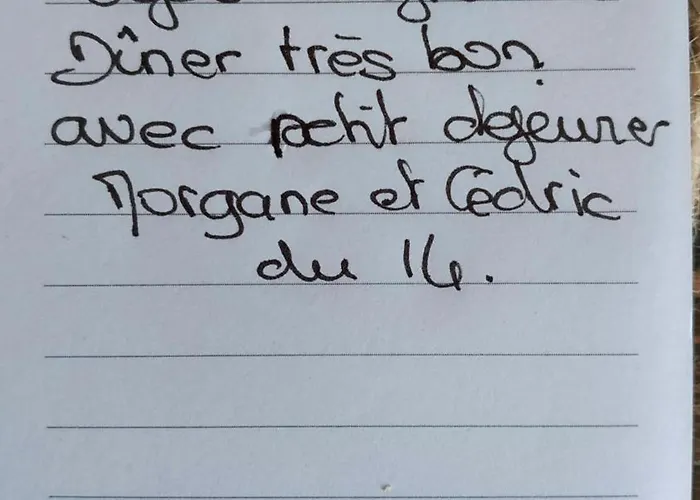 Dîner très bon
avec petit dejeuner
Morgane et Cédric
du 14.